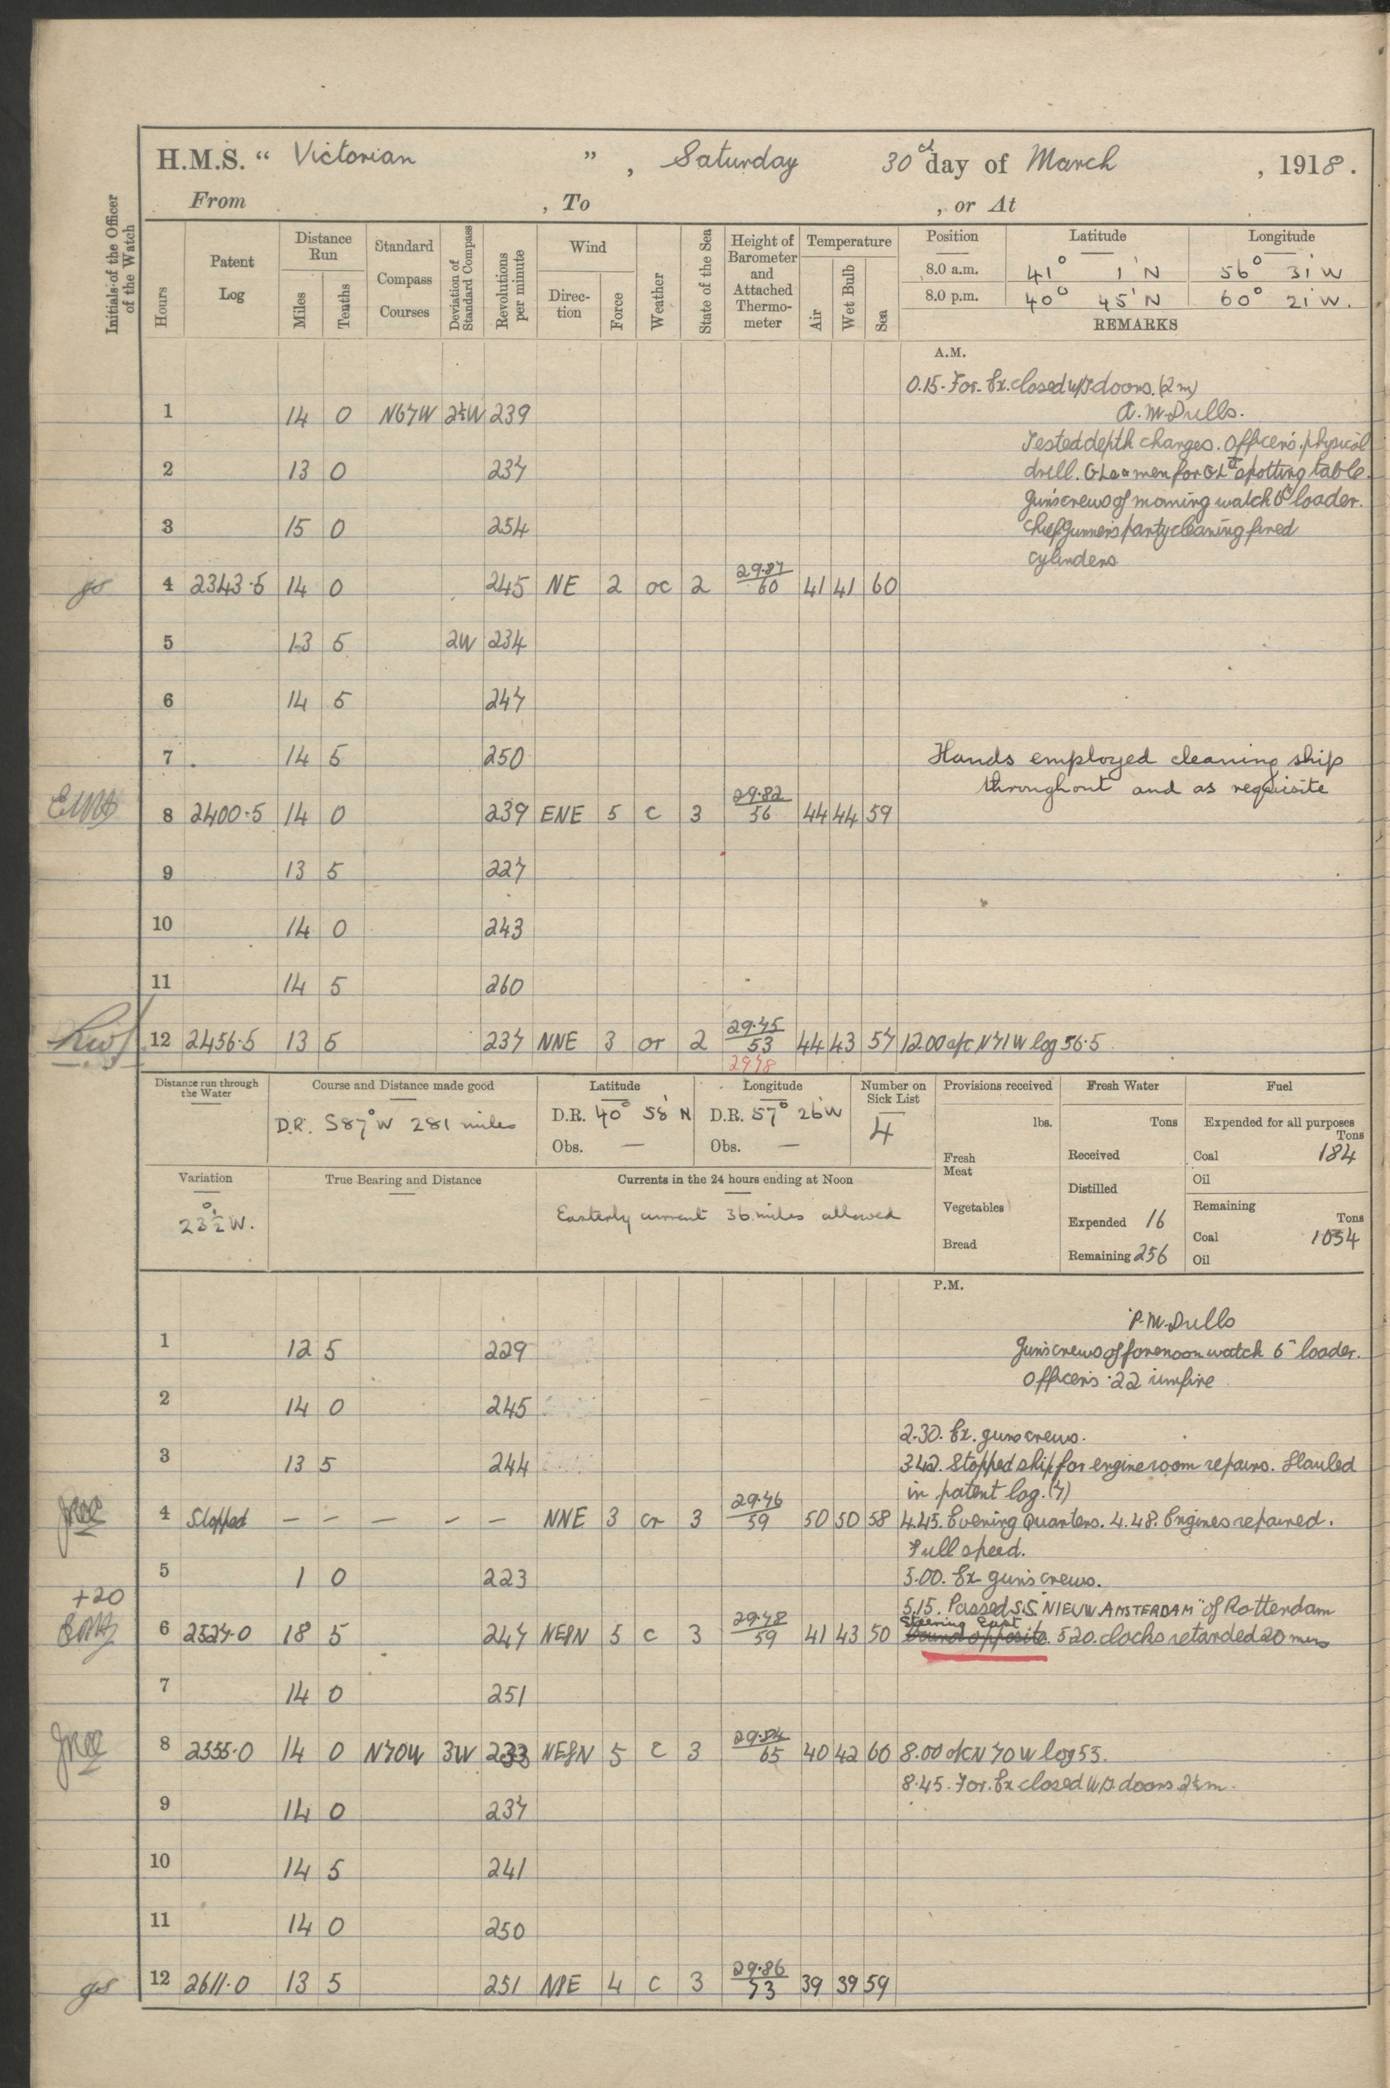 H.M.S. “ Victorian ” , Saturday 30th day of March , 1918 .
From , To , or At
Initials of the Officer of the Watch
Hours
Patent Log
Distance Run
Miles
Tenths
Standard Compass Courses
Deviation of Standard Compass
Revolutions per minute
Wind
Direction
Force
Weather
State of the Sea
Height of Barometer and Attached Thermometer
Temperature
Air
Wet Bulb
Sea
Position Latitude Longitude
8.0 a.m. 41° 1' N 56° 31' W
8.0 p.m. 40° 45' N 60° 21' W.
REMARKS
A.M.
0.15. For. Ex. closed W/T doors. (2 m)
A.M. Drills.
1 14 0 N67W 2½W 239
Tested depth charges. Officers physical
2 13 0 237
drill. spotting table.
Guns crews of morning watch 6" loader.
3 15 0 254
Chief Gunner's party cleaning fired
cylinders
4 2343.5 14 0 245 NE 2 oc 2 29.87/60 41 41 60
5 13 5 2W 234
6 14 5 247
7 14 5 250
Hands employed cleaning ship
throughout and as requisite
8 2400.5 14 0 239 ENE 5 c 3 29.82/56 44 44 59
9 13 5 227
10 14 0 243
11 14 5 260
12 2456.5 13 5 237 NNE 3 or 2 29.75/53 44 43 57 12.00 a/c N71W log 56.5
2978
Distance run through the Water
Course and Distance made good
D.R. S87°W 281 miles
Latitude
D.R. 40° 58' N
Obs. —
Longitude
D.R. 57° 26' W
Obs. —
Number on Sick List
4
Provisions received
lbs.
Fresh Meat
Vegetables
Bread
Fresh Water
Tons
Received
Distilled
Expended 16
Remaining 256
Fuel
Expended for all purposes
Tons
Coal 184
Oil
Remaining
Tons
Coal 1054
Oil
Variation
23½° W.
True Bearing and Distance
Currents in the 24 hours ending at Noon
Easterly current 36 miles allowed
P.M.
P.M. Drills
1 12 5 229
Guns crews of forenoon watch 6" loader.
Officers .22 firing
2 14 0 245
2.30. Ex. guns crews.
3 13 5 244
3.42. Stopped ship for engineroom repairs. Hauled
in patent log. (7)
4 Stopped — — — — — NNE 3 cr 3 29.76/59 50 50 58
4.45. Evening Quarters. 4.48. Engines repaired.
Full speed.
5 1 0 223
5.00. Ex guns crews.
+20
5.15. Passed S.S. "NIEUW AMSTERDAM" of Rotterdam
Steering East
6 2527.0 18 5 247 NE/N 5 c 3 29.78/59 41 43 50
bound opposite. 5.20. clocks retarded 20 mins
7 14 0 251
8 2555.0 14 0 N70W 3W 233 NE/N 5 c 3 29.84/65 40 42 60
8.00 a/c N70W log 55.
8.45. For. Ex closed W/T doors 2½m.
9 14 0 237
10 14 5 241
11 14 0 250
12 2611.0 13 5 251 N/E 4 c 3 29.86/73 39 39 59